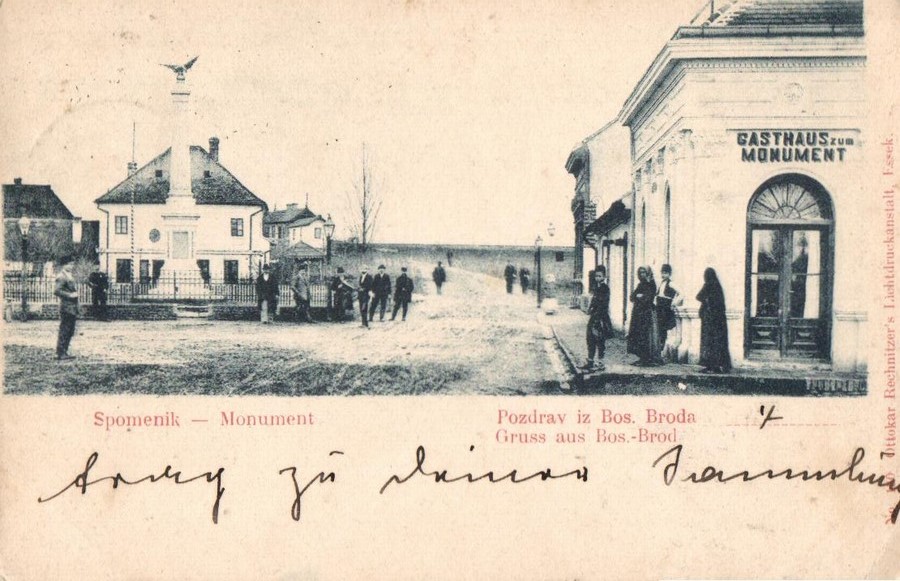 GASTHAUS ZUM
MONUMENT
Spomenik — Monument
Pozdrav iz Bos. Broda
Gruss aus Bos.-Brod
zu deiner Sammlung
Ottokar Rechnitzer's Lichtdruckanstalt, Essek.